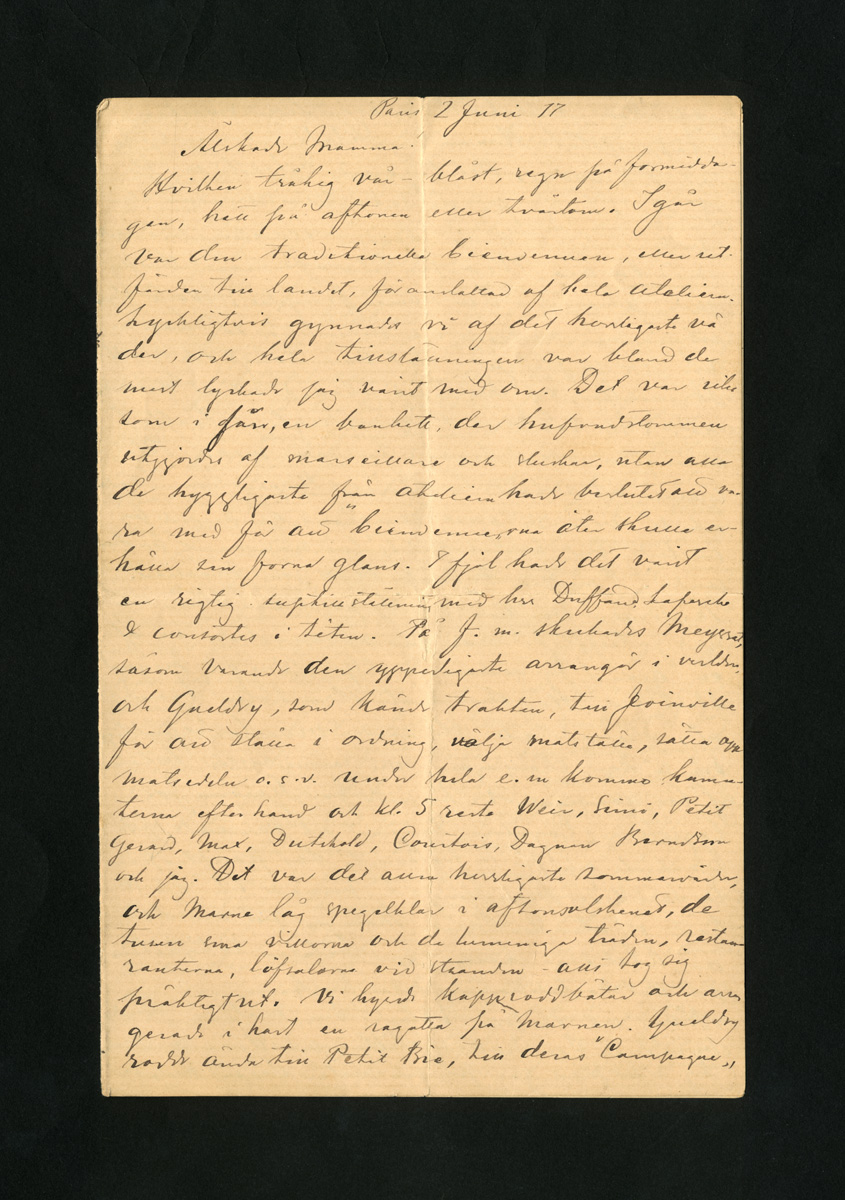 Paris 2 Juni 77
Älskade Mamma!
Hvilken tråkig vår – blåst, regn på förmidda-
gen, hett på aftonen eller tvärtom. Igår
var den traditionella bienvenuen, eller ut-
färden till landet, föranstaltad af hela atelieren.
Lyckligtvis gynnades vi af det herrligaste vä
der, och hela tillställningen var bland de
mest lyckade jag varit med om. Det var icke
som i fjår, en bankett, der hufvudstommen
utgjordes af marseillare och sluskar, utan alla
de hyggligaste från atelieren hade beslutat att va-
ra med för att "bienvenuerna åter skulle er-
hålla sin forna glans. I fjol hade det varit
en rigtig tillställning med hrr Duffaud,
& consortes i têten. På f. m. skickades
såsom varande den ypperligaste arrangör i verlden,
och Gueldry, som kände trakten, till Joinville
för att ställa i ordning, välja matställe, sätta opp
matsedeln o.s.v. Under hela e. m kommo kamra-
terna efterhand och kl. 5 reste Weir, Simi, Petit
Gerard, Max, Courtois, Dagnan Berndtson
och jag. Det var det allra herrligaste sommarväder,
och Marne låg spegelklar i aftonsolskenet, de
tusen små villorna och de lummiga träden, restau-
ranterna, löfsalarna vid stranden – allt tog sig
präktigt ut. Vi hyrde kapproddbåtar och arran
gerade i hast en regatta på Marnen. Gueldry
rodde ända till Petit Brie, till deras "Campagne"